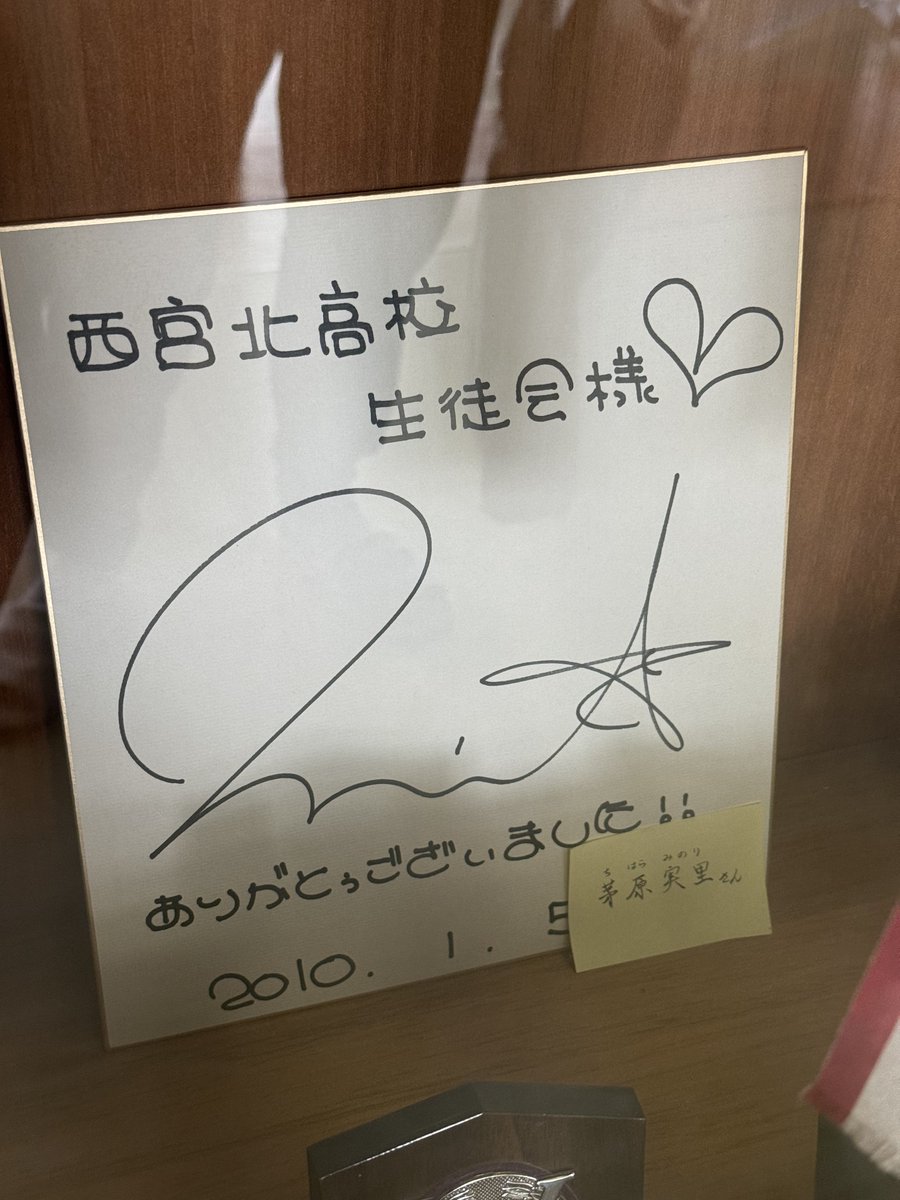 西宮北高校
生徒会様
ありがとぅございました!!
2010. 1. 5
ち はら みのり
茅原実里さん